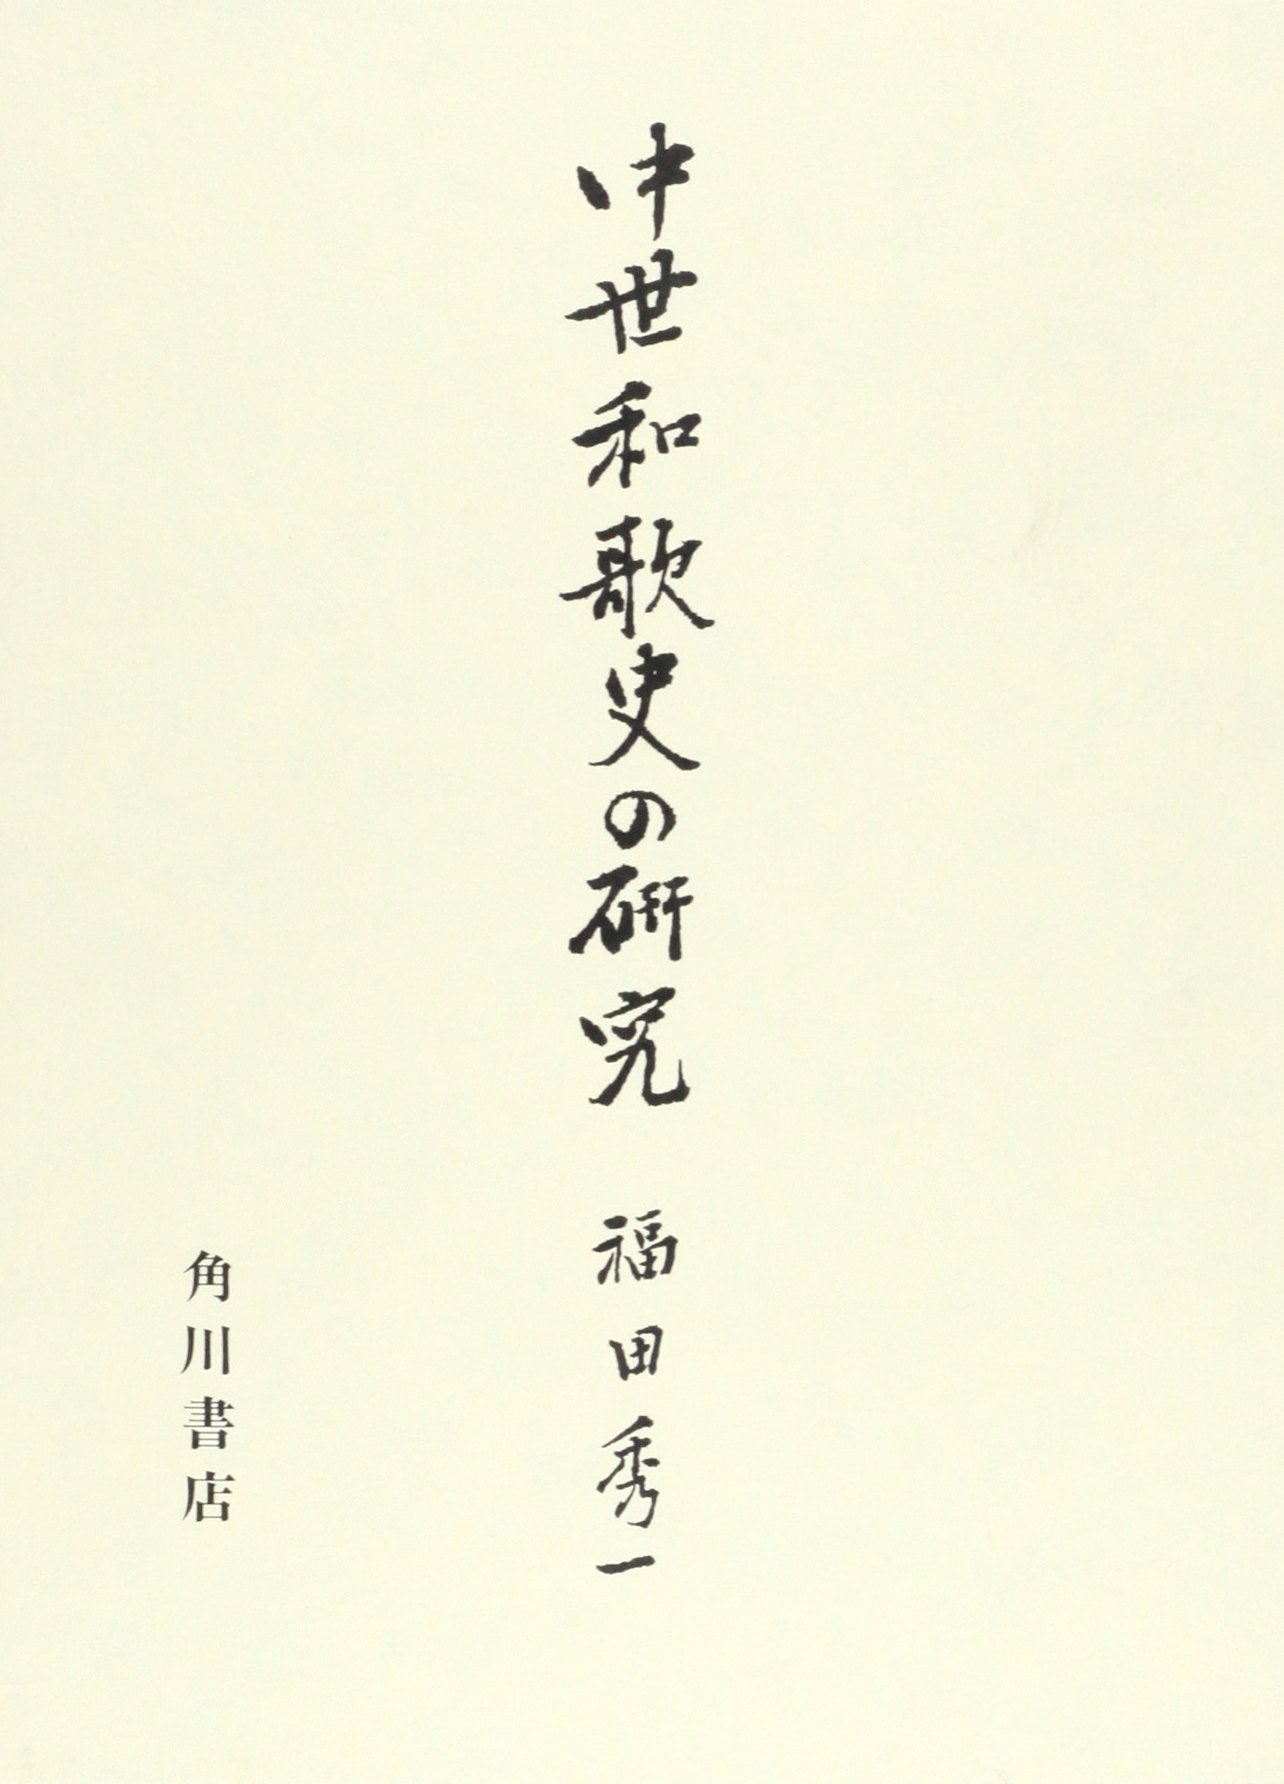 中世和歌史の研究 福田秀一
角川書店